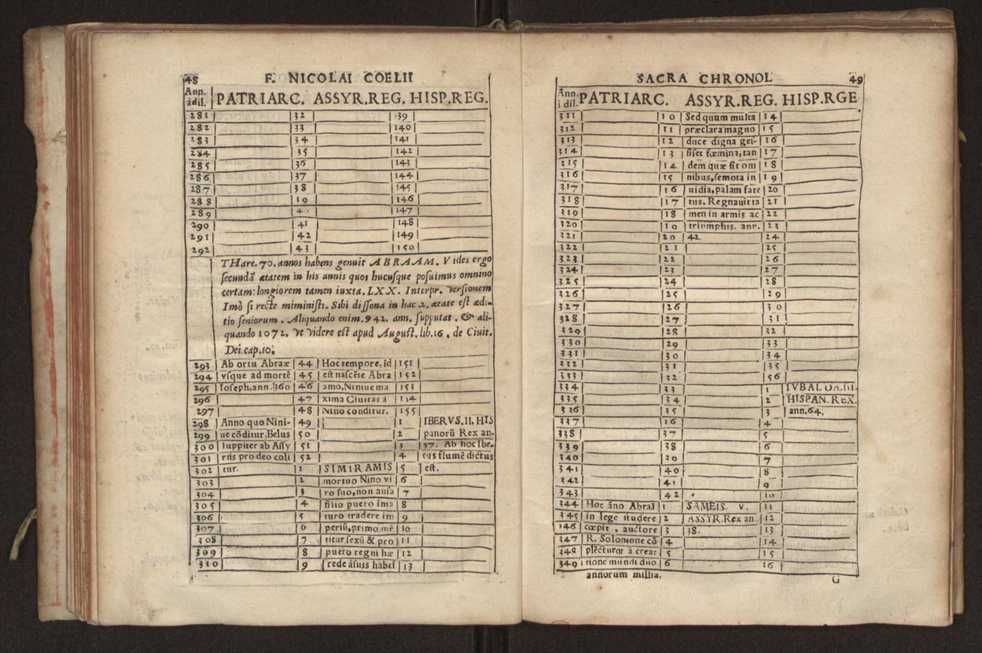 48 F. NICOLAI COELII
Ann. adil. PATRIARC. ASSYR.REG. HISP.REG.
281 32 139
282 33 140
283 34 141
284 35 142
285 36 143
286 37 144
287 38 145
288 39 146
289 40 147
290 41 148
291 42 149
292 43 150
THare. 70. annos habens genuit ABRAAM. Vides ergo
secundā ætatem in his annis quos hucusque posuimus omnino
certam: longiorem tamen iuxta. LXX. Interpr. versionem
Imò si recte miministi. Sibi dissona in hac 2. ætate est ædi-
tio seniorum. Aliquando enim. 942. ann. supputat. & ali-
quando 1072. vt videre est apud August. lib. 16. de Ciuit.
Dei. cap. 10.
293 Ab ortu Abraæ 44 Hoc tempore, id 151
294 vsque ad mortē 45 est nascēte Abra 152
295 Ioseph, ann. 360 46 amo, Niniue ma 153
296 47 xima Ciuitas a 154
297 48 Nino conditur. 155
298 Anno quo Nini- 49 1 IBERVS. II. HIS
299 ue cōditur, Belus 50 2 panorū Rex an.
300 Iuppiter ab Assy 51 3 37. Ab hoc Ibe-
301 riis pro deo coli 52 4 rus flumē dictus
302 tur. 1 SIMIRAMIS 5 est.
303 2 mortuo Nino vi 6
304 3 ro suo, non ausa 7
305 4 filio puero ima 8
306 5 turo tradere im 9
307 6 periū, primo mē 10
308 7 titur sexū & pro 11
309 8 puero regni hæ 12
310 9 rede ásuis habet 13
SACRA CHRONOL 49
Ann. i dil. PATRIARC. ASSYR.REG. HISP.RGE
311 10 Sed quum multa 14
312 11 præclara magno 15
313 12 duce digna ges- 16
314 13 sisset fœmina, tan 17
315 14 dem quæ sit om 18
316 15 nibus, semota in 19
317 16 uidia, palam fate 20
318 17 tus. Regnauit ta 21
319 18 men in armis ac 22
320 19 triumphis. ann. 23
321 20 42. 24
322 21 25
323 22 26
324 23 27
325 24 28
326 25 29
327 26 30
328 27 31
329 28 32
330 29 33
331 30 34
332 31 35
333 32 36
334 33 1 TVBAL Dā. III.
335 34 2 HISPAN. REX.
336 35 3 ann. 64.
337 36 4
338 37 5
339 38 6
340 39 7
341 40 8
342 41 9
343 42 10
344 Hoc āno Abraā 1 SAMEIS. V. 11
345 in lege studere 2 ASSYR.Rex an. 12
346 cœpit, auctore 3 38. 13
347 R. Solomone cō 4 14
348 plectūtur à crear 5 15
349 tione mundi duo 6 16
annorum millia. G